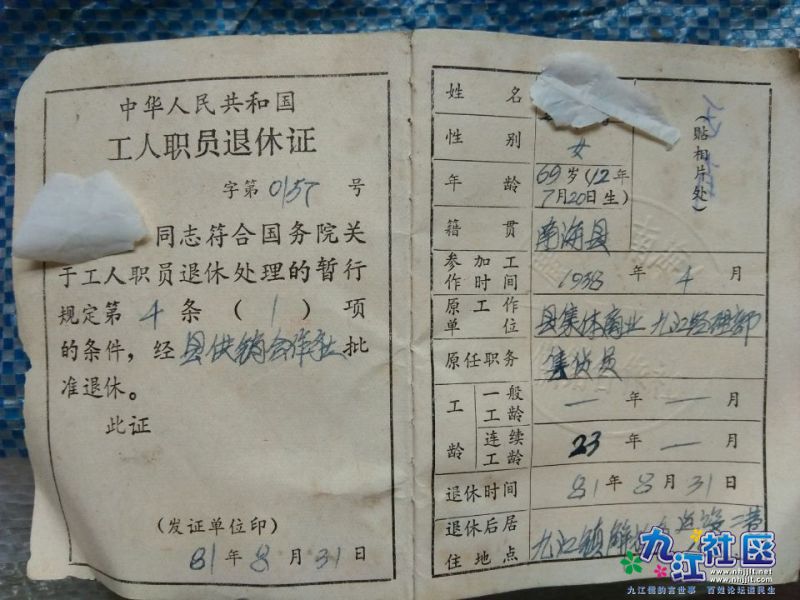 中华人民共和国
工人职员退休证
字第 0157 号
同志符合国务院关
于工人职员退休处理的暂行
规定第 4 条 ( 1 ) 项
的条件，经县供销合作社批
准退休。
此证
(发证单位印)
81年8月31日
姓名
性别 女
年龄 69岁(12年7月20日生)
(贴相片处)
籍贯 南海县
参加工作时间 1958年4月
原工作单位 县集体商业九江经理部
原任职务 售货员
工龄 一般工龄 一年一月
连续工龄 23年一月
退休时间 81年8月31日
退休后居住地点 九江镇
九江社区
www.nhjjlt.net
www.nhjjlt.com
九江儒的言世事 百姓论坛道民生